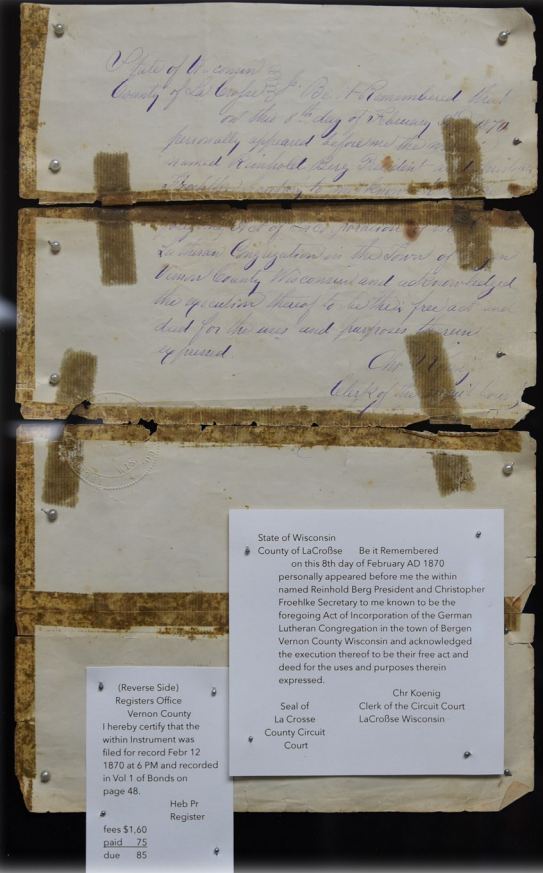 State of Wisconsin
County of La Croße Be it Remembered that
on this 8th day of February AD 1870
personally appeared before me the
named Reinhold Berg President and
Froehlke to me known
Act of
Lutheran Congregation in the Town of
Vernon County Wisconsin and acknowledged
the execution thereof to be their free act and
deed for the uses and purposes therein
expressed.
Chr
Clerk of the
State of Wisconsin
County of LaCroßse Be it Remembered
on this 8th day of February AD 1870
personally appeared before me the within
named Reinhold Berg President and Christopher
Froehlke Secretary to me known to be the
foregoing Act of Incorporation of the German
Lutheran Congregation in the town of Bergen
Vernon County Wisconsin and acknowledged
the execution thereof to be their free act and
deed for the uses and purposes therein
expressed.
Chr Koenig
Seal of Clerk of the Circuit Court
La Crosse LaCroßse Wisconsin
County Circuit
Court
(Reverse Side)
Registers Office
Vernon County
I hereby certify that the
within Instrument was
filed for record Febr 12
1870 at 6 PM and recorded
in Vol 1 of Bonds on
page 48.
Heb Pr
Register
fees $1,60
paid 75
due 85